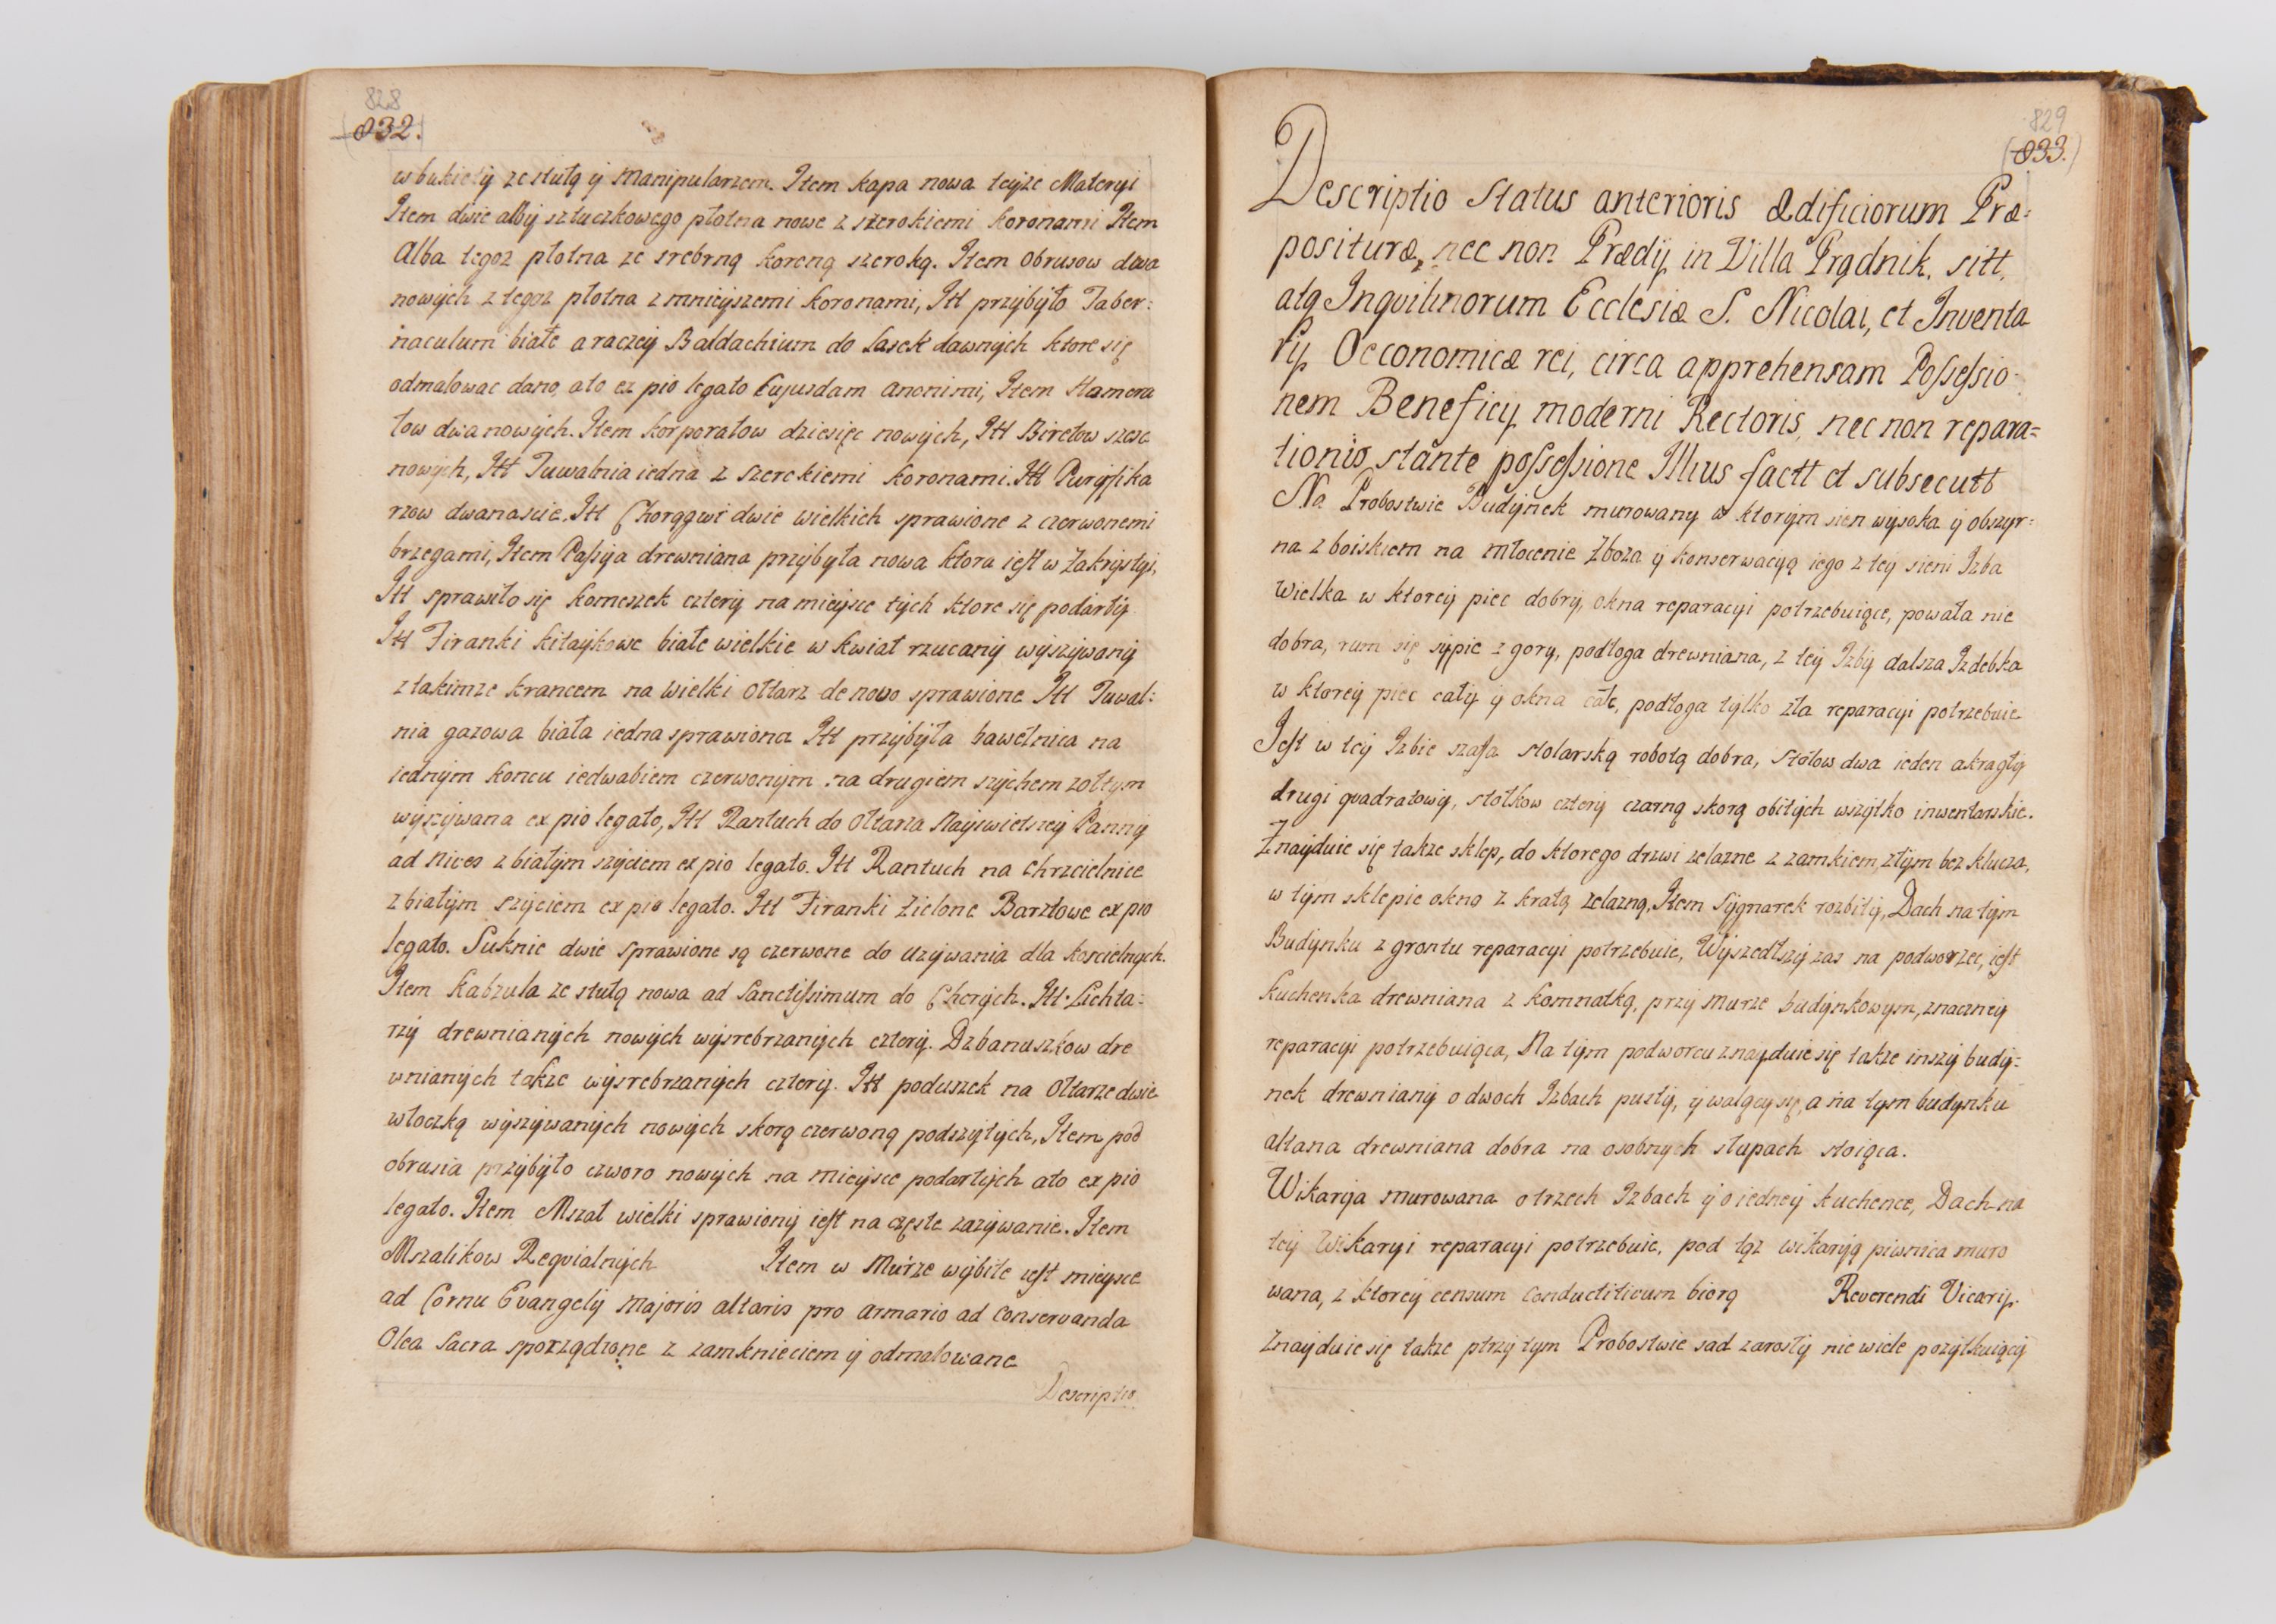 828
832.
w bukiety ze stułą y Manipularzem. Item kapa nowa teyze Materyi
Item dwie alby sztuczkowego płotna nowe z szerokiemi koronami Item
Alba tegoz płotna ze srebrną koroną szeroką. Item Obrusow dwa
nowych z tegoz płotna z mnieyszemi koronami, Itt przybyło Taber:
naculum białe a raczey Baldachium do lasek dawnych ktore się
odmalowac dano, ato ex pio legato Cujusdam Anonimi, Item Hamera
tow dwa nowych. Item korporałow dziesięc nowych, Itt Biretow szesc
nowych, Itt Tuwalnia iedna z szerokiemi koronami. Itt Puryfika
rzow dwanascie. Itt Chorągwi dwie wielkich sprawione z czerwonemi
brzegami, Item Passya drewniana przybyła nowa ktora iest w Zakrystyi,
Itt sprawiło się komeszek cztery na mieysce tych ktore się podarły
Itt Firanki kitaykowe białe wielkie w kwiat rzucany wyszywany
z takimze krancem na wielki Ołtarz de novo sprawione Itt Tuwal:
nia gazowa biała iedna sprawiona Itt przybyła bawełnica na
iednym koncu iedwabiem czerwonym na drugiem szychem zołtym
wyszywana ex pio legato, Itt Rantuch do Ołtarza Nayswietszey Panny
ad Nives z białym szyciem ex pio legato. Itt Rantuch na Chrzcielnice
z białym szyciem ex pio legato. Itt Firanki zielone Barztowe ex pio
legato. Suknie dwie sprawione są czerwone do uzywania dla koscielnych.
Item Kabzula ze stułą nowa ad Sanctissimum do Chorych. Itt Lichta:
rzy drewnianych nowych wysrebrzanych cztery. Dzbanuszkow dre
wnianych takze wysrebrzanych cztery. Itt poduszek na Ołtarze dwie
włoczką wyszywanych nowych skorą czerwoną podszytych, Item pod
obrusia przybyło czworo nowych na mieysce podartych ato ex pio
legato. Item Mszał wielki sprawiony iest na częste zazywanie. Item
Mszalikow Requialnych Item w Murze wybite iest mieysce
ad Cornu Evangelij Majoris altaris pro Armario ad Conservanda
Olea Sacra sporządzone z zamknieciem y odmalowane
Descriptio
829
(833.)
Descriptio Status anterioris Ædificiorum Præ:
posituræ, nec non Prædij in Villa Prądnik sitt,
atq Inquilinorum Ecclesiæ S. Nicolai, et Inventa
rij Oeconomicæ rei, circa apprehensam Possessio:
nem Beneficij moderni Rectoris, nec non repara=
tionis stante possessione Illius factt et subsecutt
Na Probostwie Budynek murowany w ktorym sien wysoka y obszyr:
na z boiskiem na młocenie Zboza y konserwacyą iego z tey sieni Izba
Wielka w ktorey piec dobry, okna reparacyi potrzebuiące, powała nie
dobra, rum się sypie z gory, podłoga drewniana, z tey Izby dalsza Izdebka
w ktorey piec cały y okna całe, podłoga tylko zła reparacyi potrzebuie
Jest w tey Izbie szafa stolarską robotą dobra, stołow dwa ieden akragły
drugi quadratowy, stołkow cztery czarną skorą obitych wszytko inwentarskie.
Znayduie się takze sklep, do ktorego drzwi zelazne z zamkiem, złym bez klucza,
w tym sklepie okno z kratą zelazną, Item Sygnarek rozbity, Dach na tym
Budynku z grontu reparacyi potrzebuie, Wyszedłszy zas na podworzec, iest
kuchenka drewniana z komnatką, przy murze budynkowym, znaczney
reparacyi potrzebuiąca, Na tym podworcu znayduie się takze inszy budy:
nek drewniany o dwoch Izbach pusty, y walący się, a na tym budynku
altana drewniana dobra na osobnych słupach stoiąca.
Wikarya murowana o trzech Izbach y o iedney kuchence, Dach na
tey Wikaryi reparacyi potrzebuie, pod tąz wikaryą piwnica muro
wana, z ktorey censum conductitium biorą Reverendi Vicarij.
Znayduie się takze ptrzy tym Probostwie sad zarosły nie wiele pozytkuiący